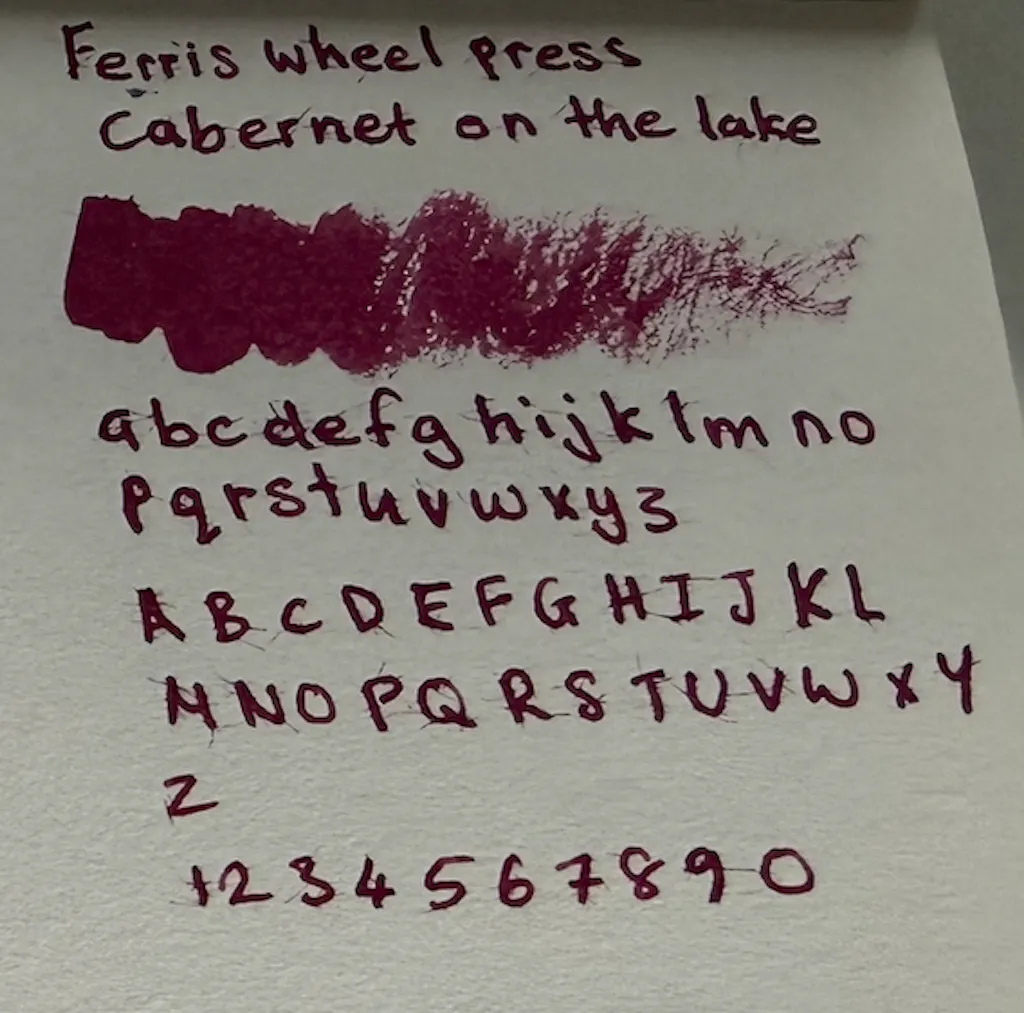 Ferris wheel press
Cabernet on the lake
abcdefghijklmno
pqrstuvwxyz
ABCDEFGHIJKL
MNOPQRSTUVWXY
Z
1234567890